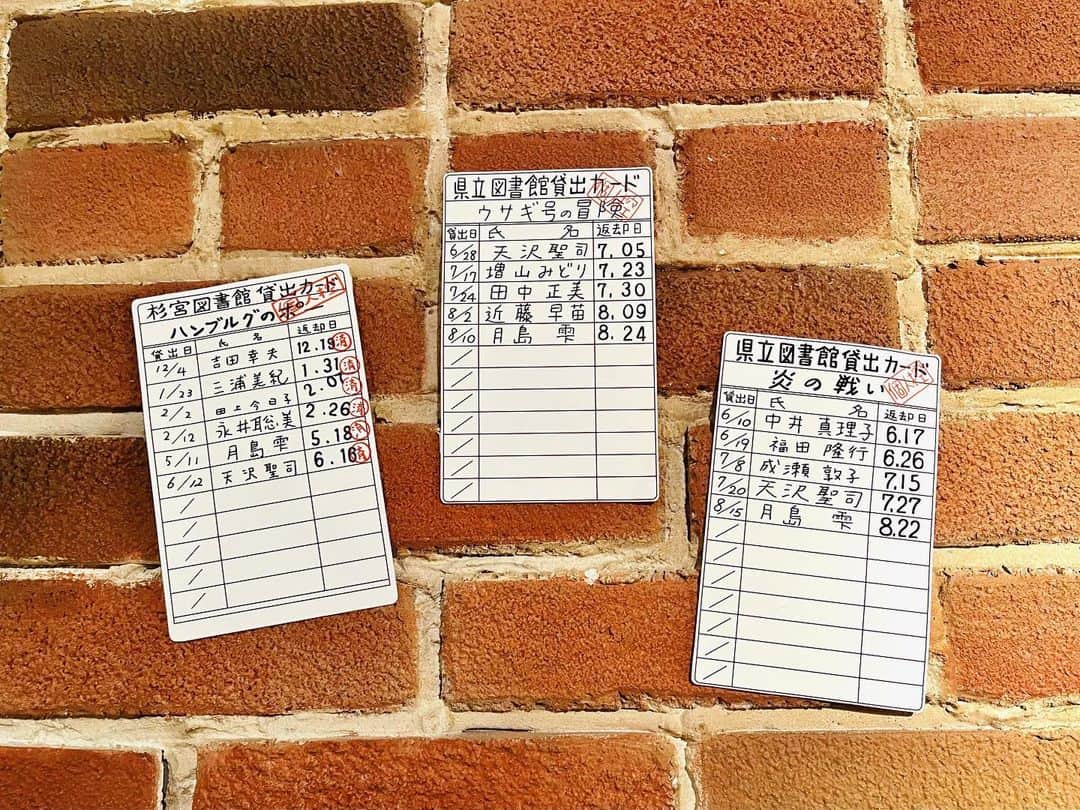 杉宮図書館 貸出カード
ハンブルグの
貸出日 氏 名 返却日
12/4 吉田幸夫 12.19 済
1/23 三浦美紀 1.31 済
2/2 田上今日子 2.07 済
2/12 永井聡美 2.26 済
5/11 月島雫 5.18 済
6/12 天沢聖司 6.16 済
県立図書館貸出カード
ウサギ号の冒険
貸出日 氏 名 返却日
6/28 天沢聖司 7.05
7/17 増山みどり 7.23
7/24 田中正美 7.30
8/2 近藤早苗 8.09
8/10 月島 雫 8.24
県立図書館貸出カード
炎の戦い
貸出日 氏 名 返却日
6/10 中井真理子 6.17
6/19 福田隆行 6.26
7/8 成瀬敦子 7.15
7/20 天沢聖司 7.27
8/15 月島 雫 8.22